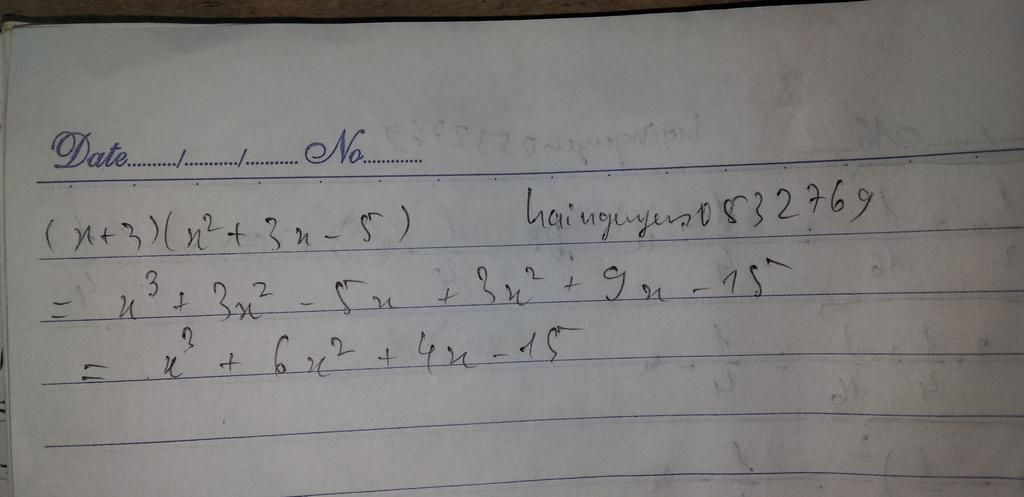 Date........../........../.......... No............
(x+3)(x²+3x-5) hainguyen0532769
= x³ + 3x² - 5x + 3x² + 9x - 15
= x³ + 6x² + 4x - 15